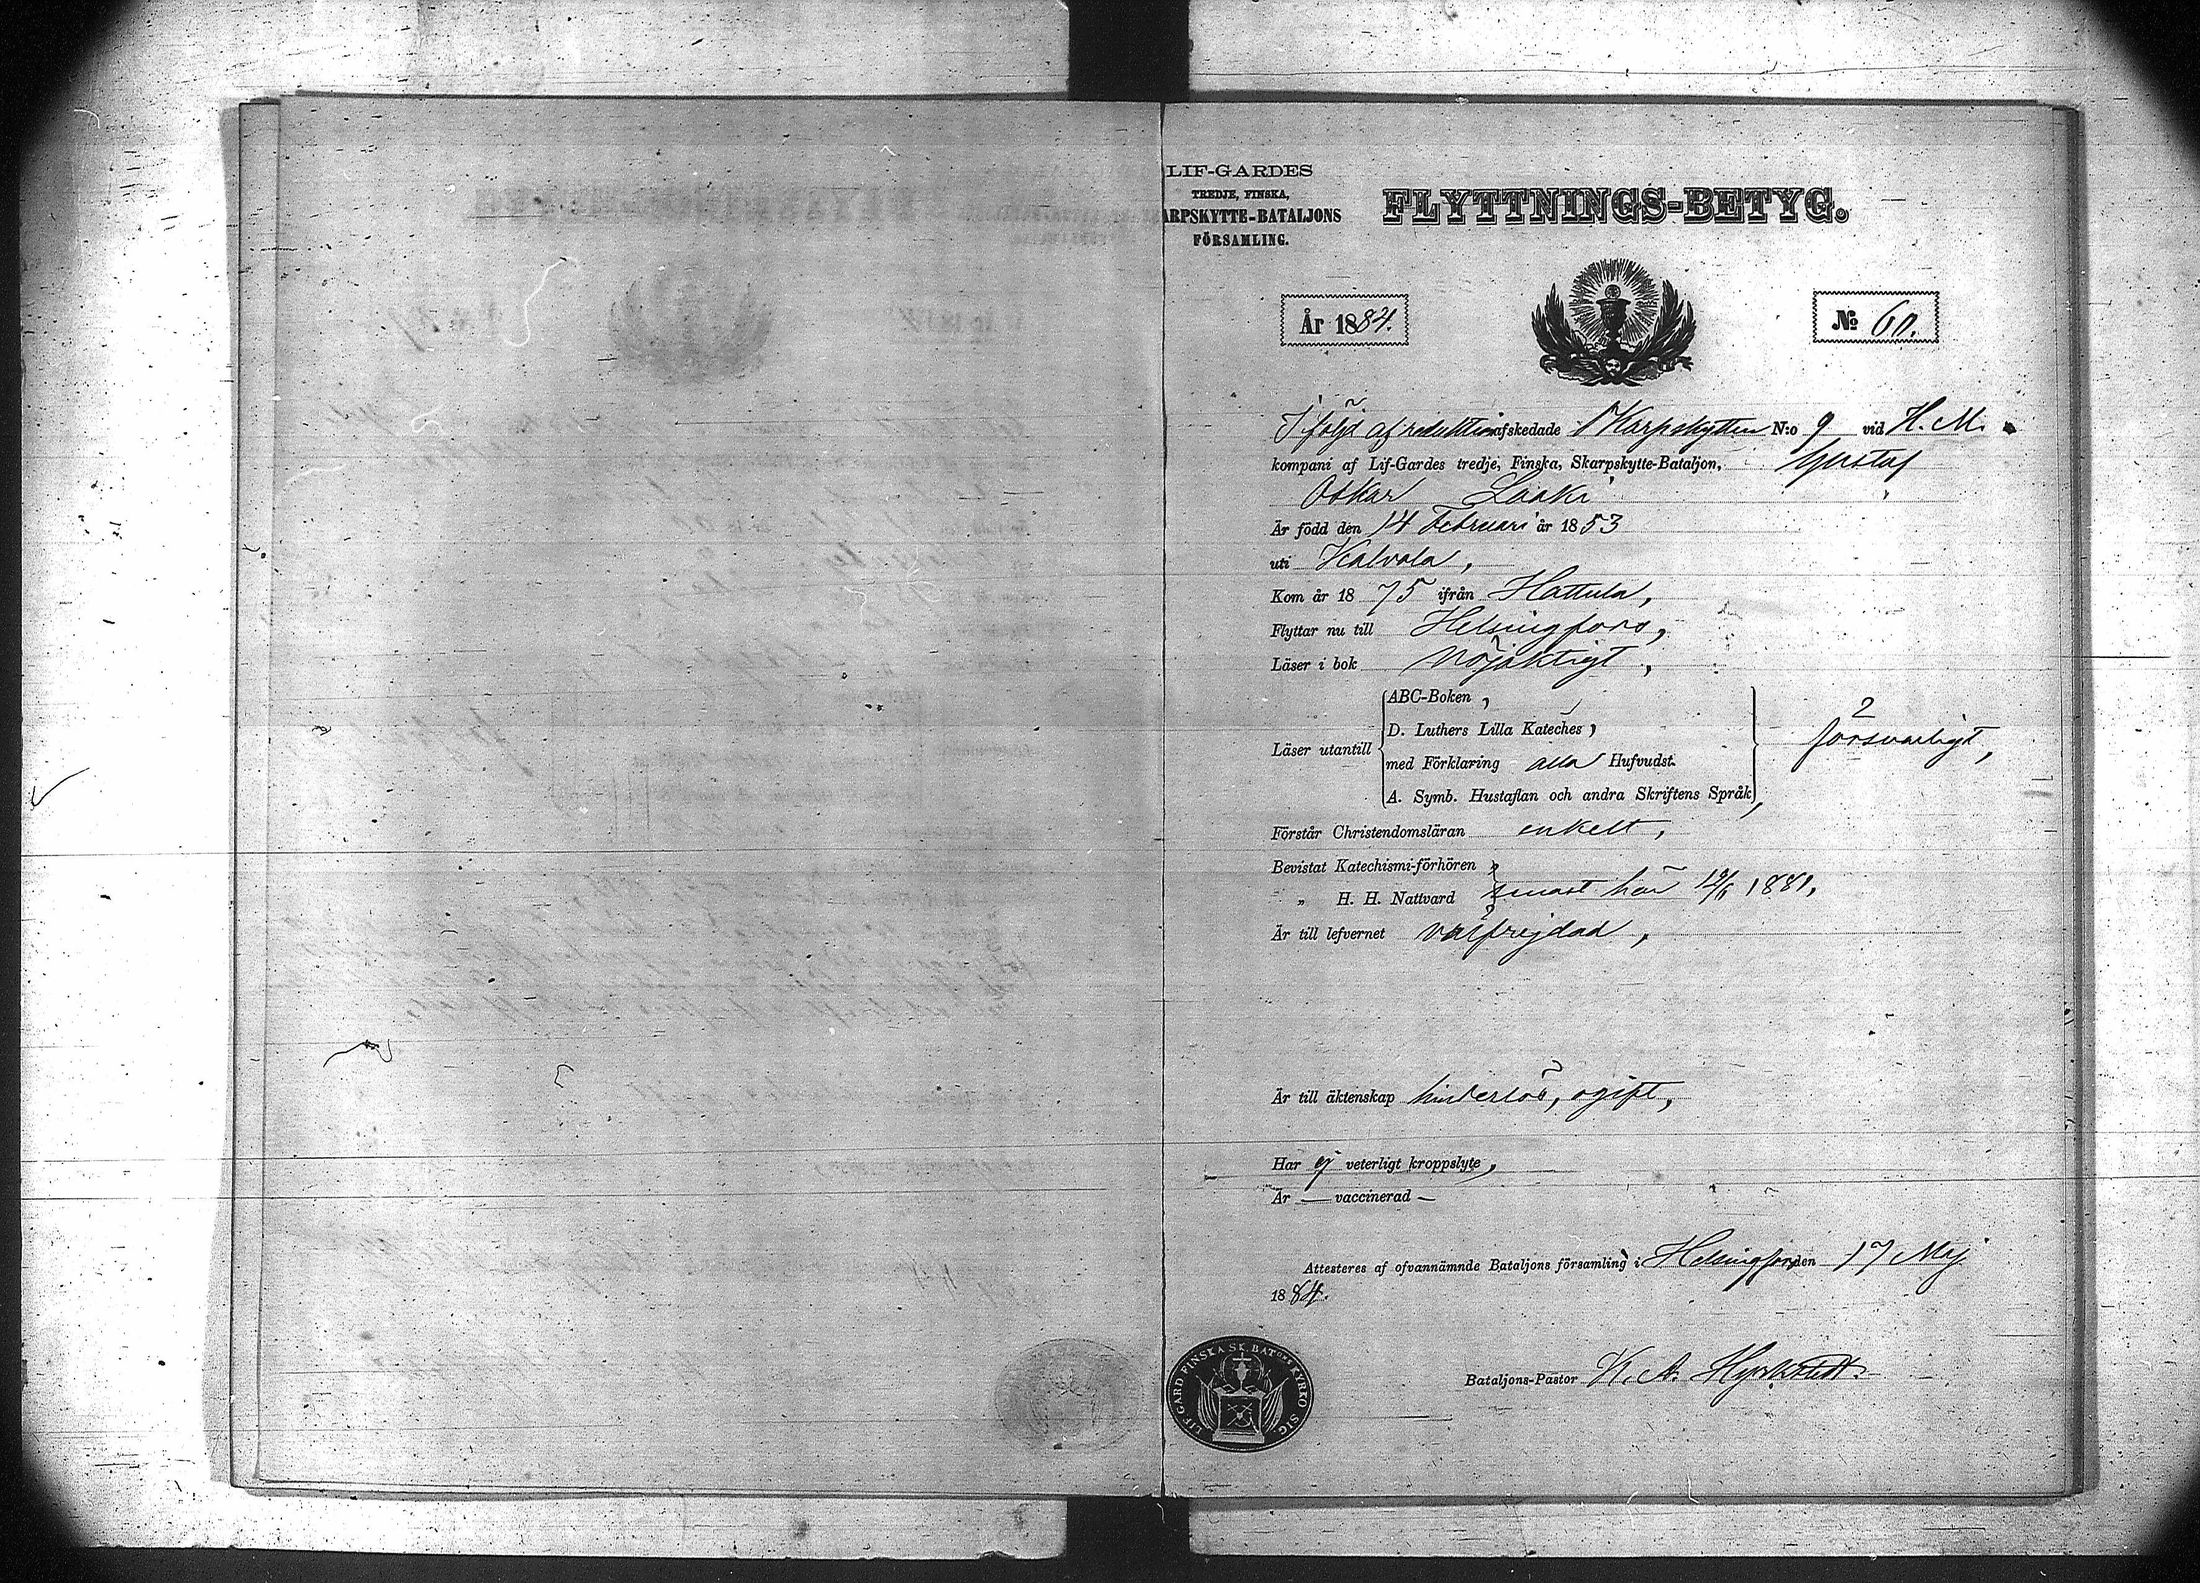 LIF-GARDES
TREDJE, FINSKA,
ARPSKYTTE-BATALJONS
FÖRSAMLING.
FLYTTNINGS-BETYG.
År 1884.
№ 60.
I följd af reduktion afskedade Skarpskytten N:o 9 vid H. M.
kompani af Lif-Gardes tredje, Finska, Skarpskytte-Bataljon, Gustaf
Oskar Laaki
Är född den 14 Februari år 1853
uti Kalvola,
Kom år 1875 ifrån Hattula,
Flyttar nu till Helsingfors,
Läser i bok nöjaktigt,
ABC-Boken,
D. Luthers Lilla Kateches,
Läser utantill
med Förklaring alla Hufvudst.
A. Symb. Hustaflan och andra Skriftens Språk,
försvarligt,
Förstår Christendomsläran enkelt,
Bevistat Katechismi-förhören
„ H. H. Nattvard senast här 12/6 1881,
Är till lefvernet välfrejdad,
Är till äktenskap hinderlös, ogift,
Har ej veterligt kroppslyte,
Är — vaccinerad —
Attesteres af ofvannämnde Bataljons församling i Helsingfors den 17 Maj
1884.
Bataljons-Pastor K. A. Hyrkstedt.
LIF GARD FINSKA SK. BATONS KYRKO SIG.